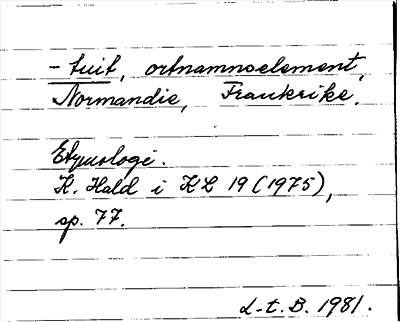 -tuit, ortnamnselement,
Normandie, Frankrike.
Etymologi.
K. Hald i KL 19 (1975),
sp. 77.
L-t. B. 1981.